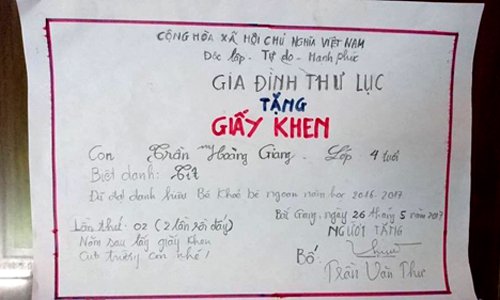 CỘNG HÒA XÃ HỘI CHỦ NGHĨA VIỆT NAM
Độc lập - Tự do - Hạnh phúc
GIA ĐÌNH THƯ LỤC
TẶNG
GIẤY KHEN
Con Trần Hoàng Giang. Lớp 4 tuổi
Biệt danh: Tít
Đã đạt danh hiệu Bé khoẻ bé ngoan năm học 2016-2017
Bắc Giang, ngày 26 tháng 5 năm 2017
Lần thứ: 02 (2 lần rồi đấy)
NGƯỜI TẶNG
Năm sau lấy giấy khen
của trường con nhé!
Bố:
Trần Văn Thư